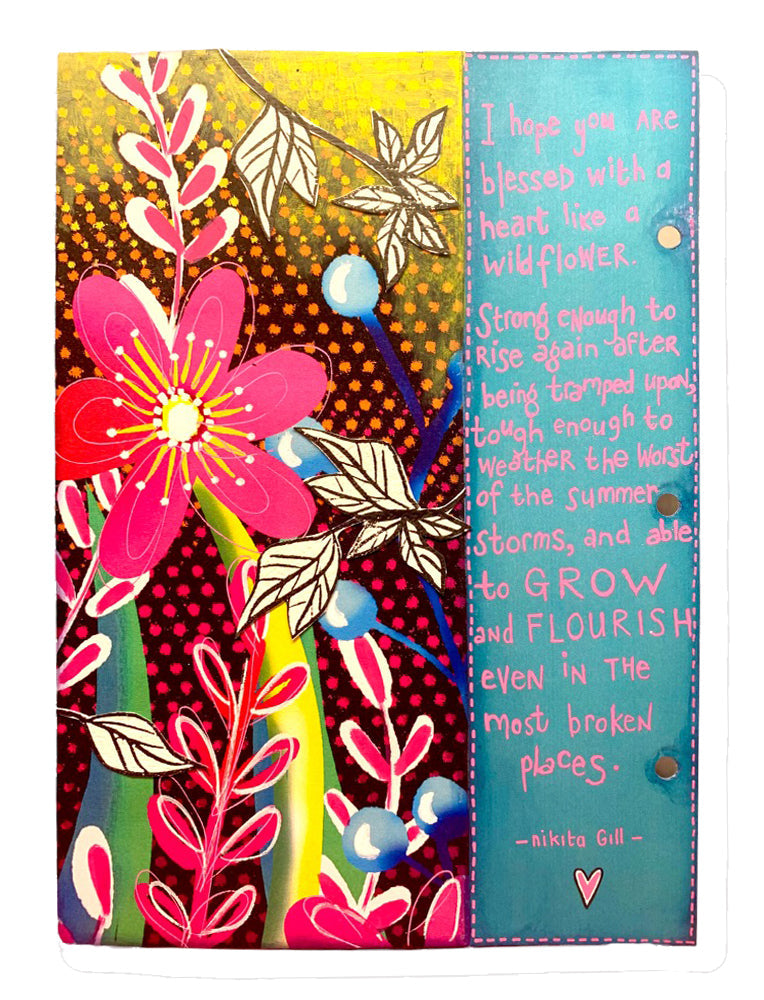 I hope you ARE
blesseD with a
heart like a
wildfloWER.
Strong eNough to
Rise again after
being tramped upon,
tough enough to
weather the worst
of the summer
storms, and able
to GROW
and FLOURISH
eveN iN THe
most broken
places.
-nikita Gill-